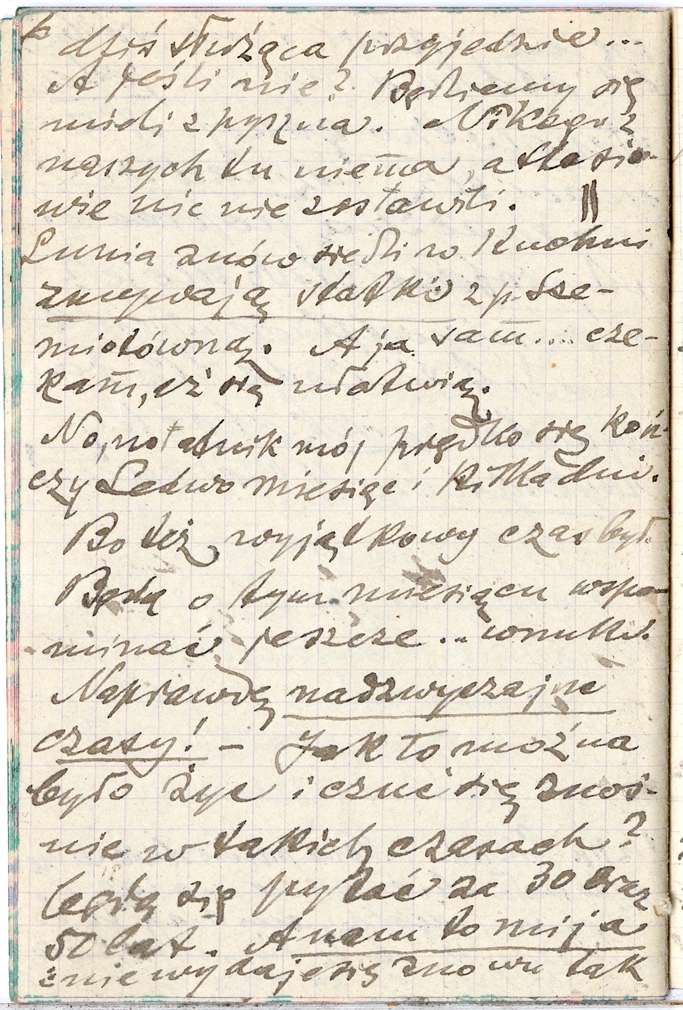 dziś służąca przyjedzie...
A jeśli nie? Będziemy się
mieli z pyszna. Nikogo z
naszych tu niema, a Stasio-
wie nic nie zostawili.
Lunia znów siedzi w Kuchni
zmywają statki z p. Sze-
miotówną. A ja sam.... cze-
kam, aż się ułatwią.
No, notatnik mój prędko się koń-
czy Ledwo miesiąc i kilka dni.
Bo też wyjątkowy czas był.
Będą o tym miesiącu wspo-
minać jeszcze... wnuki.
Naprawdę nadzwyczajne
czasy! – Jak to można
było żyć i czuć się znoś-
nie w takich czasach?
będą się pytać za 30 oraz
50 lat. A nam to mija
i nie wydaje się znowu tak